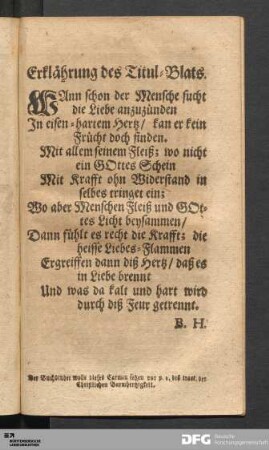 Erklährung des Titul-Blats.
WAnn schon der Mensche sucht
die Liebe anzuzünden
In eisen-hartem Hertz/ kan er kein
Frücht doch finden.
Mit allem seinem Fleiß; wo nicht
ein GOttes Schein
Mit Krafft ohn Widerstand in
selbes tringet ein;
Wo aber Menschen Fleiß und GOt-
tes Licht beysammen/
Dann fühlt es recht die Krafft; die
heisse Liebes-Flammen
Ergreiffen dann diß Hertz/ daß es
in Liebe brennt
Und was da kalt und hart wird
durch diß Feur getrennt.
B. H.
Der Buchbinder wolle dieses Carmen setzen vor p. 1. deß Tract. der
Christlichen Barmhertzigkeit.
DFG
Deutsche
Forschungsgemeinschaft